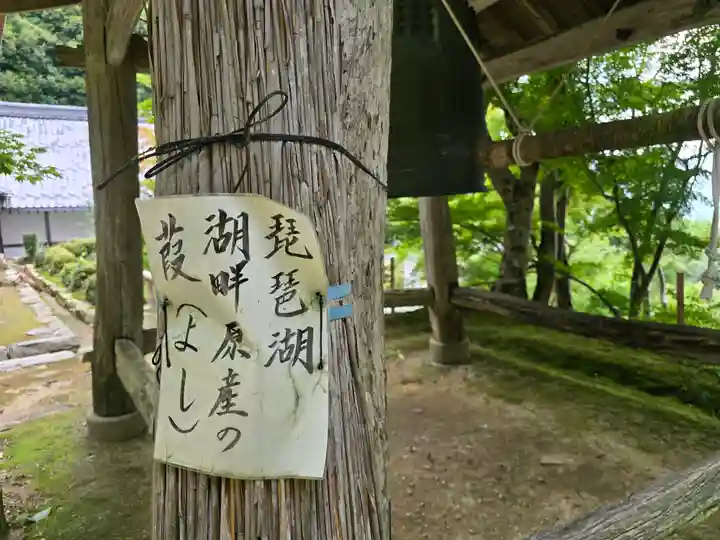 琵琶湖
湖畔原産の
葭（よし）